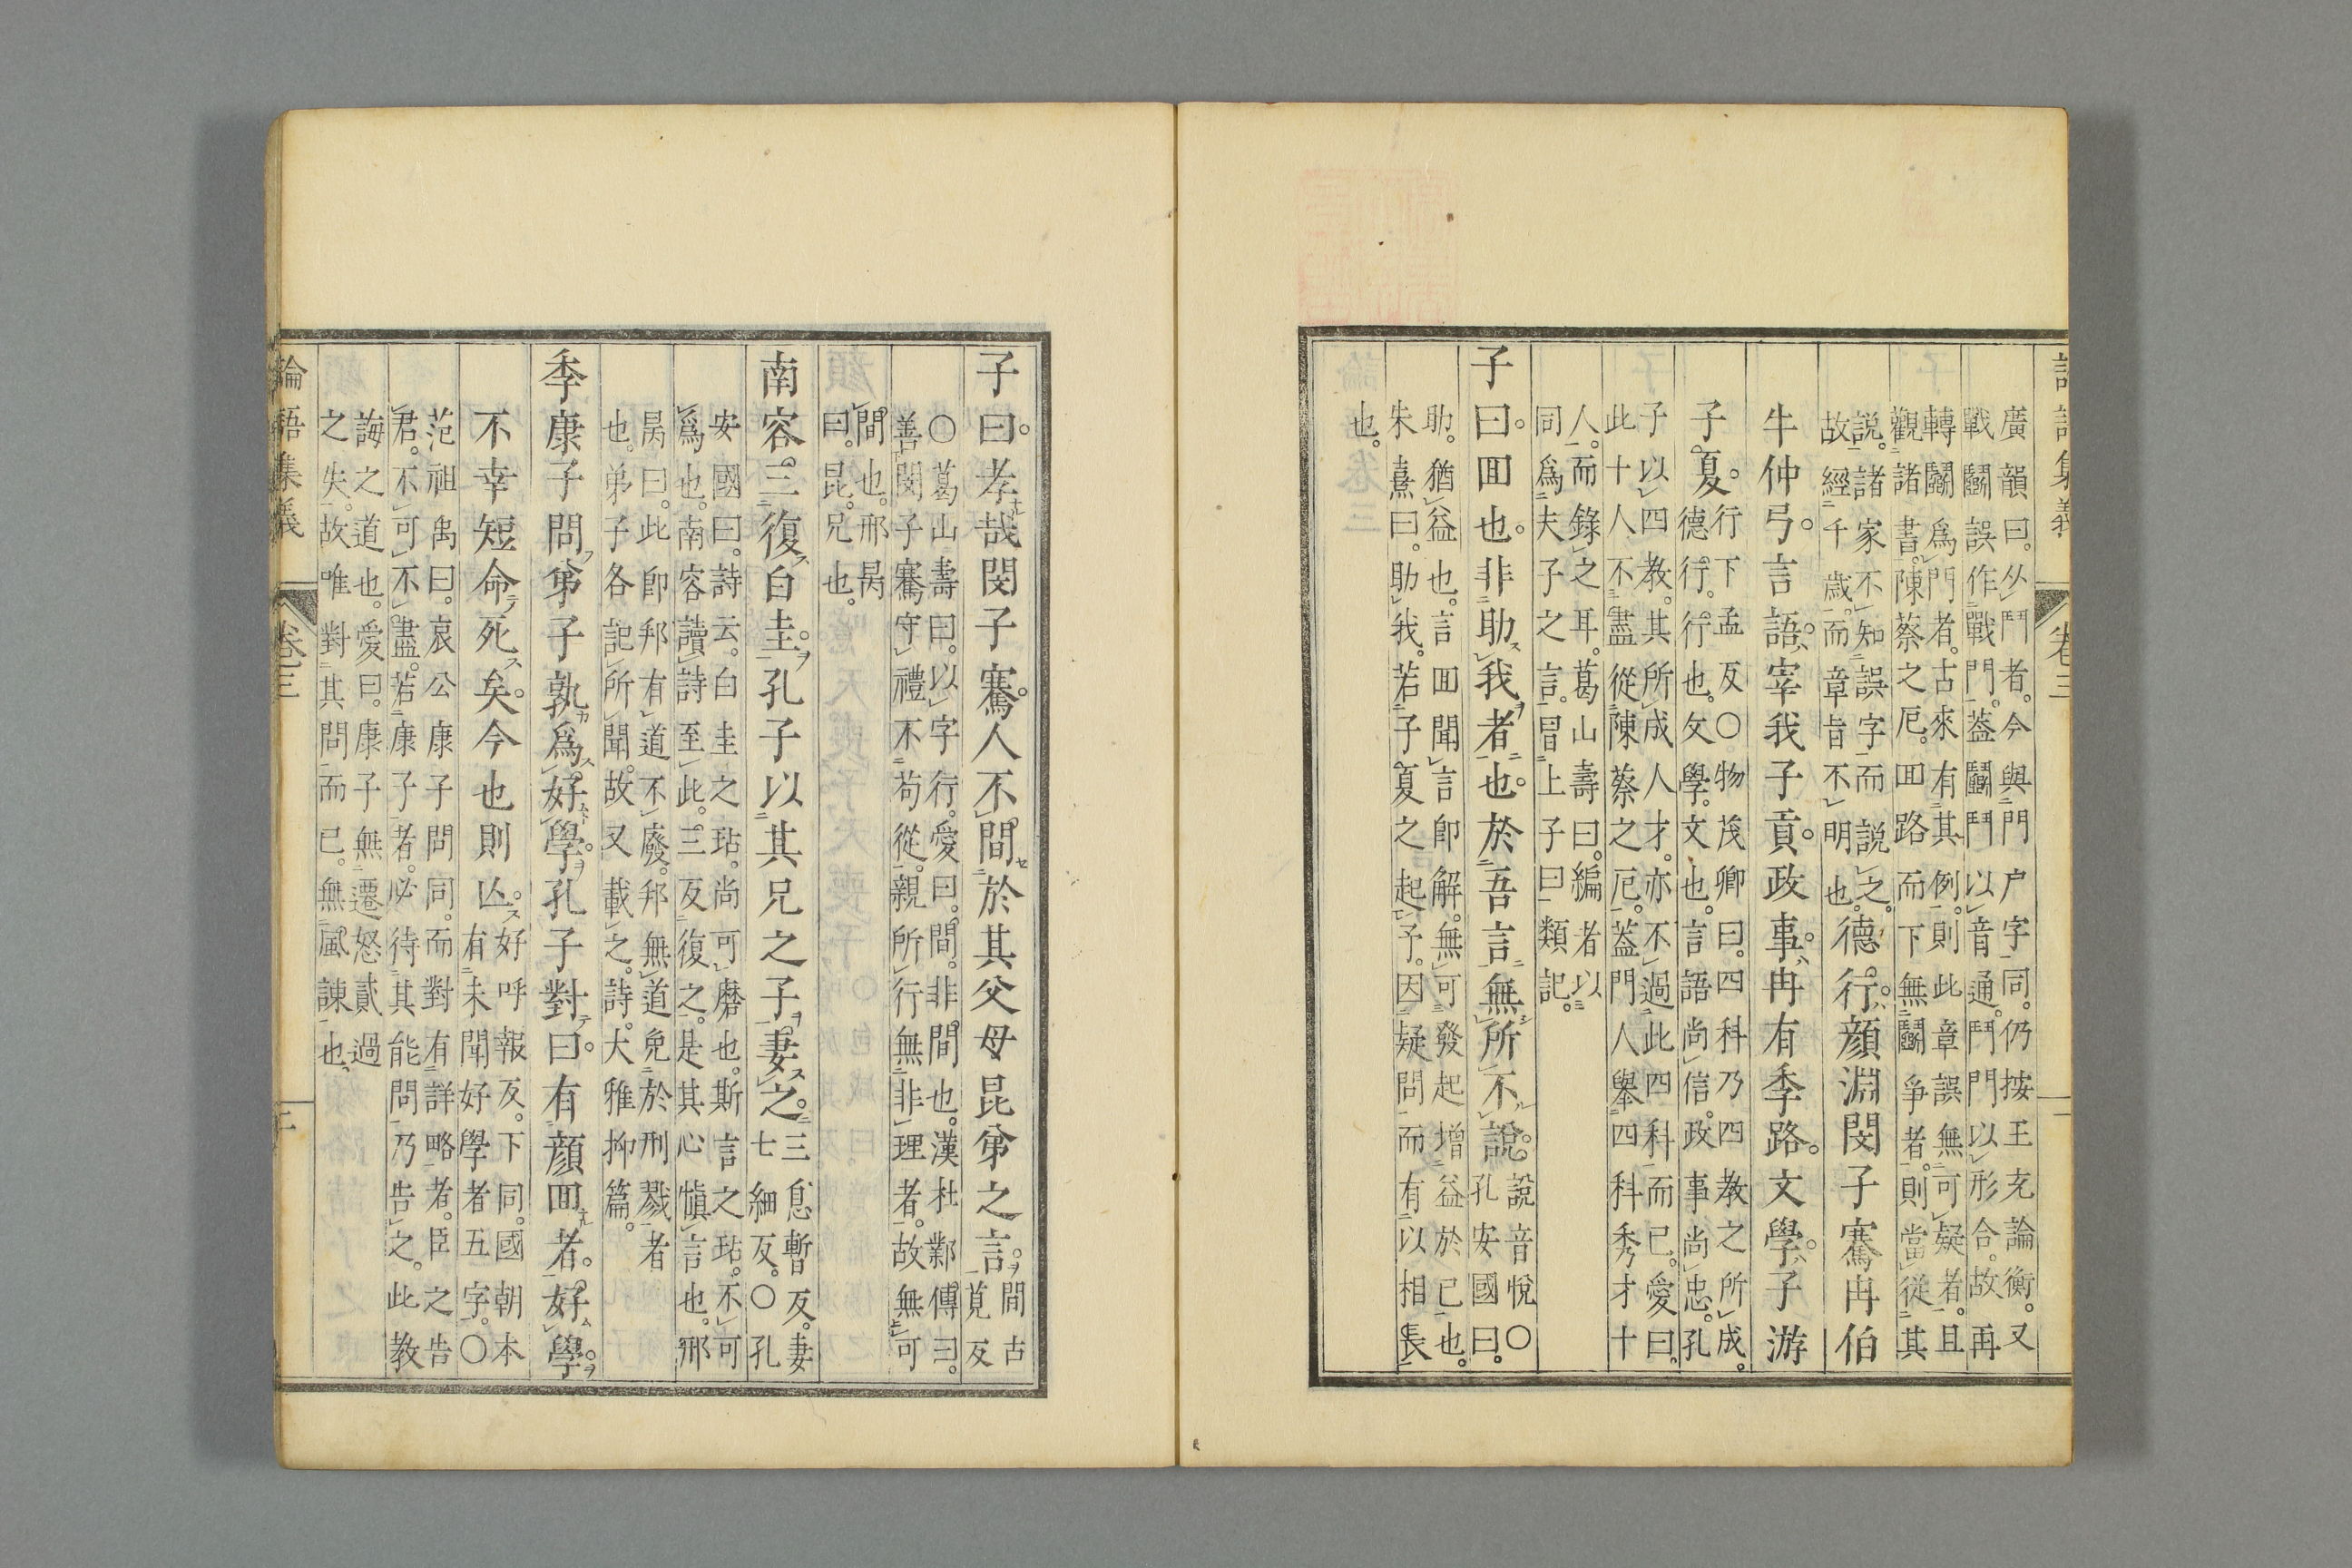 論語集義 卷三 一
廣韻曰。从鬥者。今與門戶字同。仍按王充論衡。又
戰鬬誤作戰門。蓋鬬鬥以音通。鬥門以形合。故再
轉鬬爲門者。古來有其例。則此章誤無可疑者。且
觀諸書。陳蔡之厄。囬路而下無鬬爭者。則當從其
説。諸家不知誤字而説之。
故經千歳。而章旨不明也。
德行。顏淵閔子騫冉伯
牛仲弓。言語。宰我子貢。政事。冉有季路。文學。子游
子夏。
行下孟反○物茂卿曰。四科乃四教之所成。
德行。行也。文學。文也。言語尚信。政事尚忠。孔
子以四教。其所成人才。亦不過此四科而已。愛曰。
此十人不盡從陳蔡之厄。蓋門人舉四科秀才十
人。而錄之耳。葛山壽曰。編者以
同爲夫子之言。冒上子曰類記。
子曰。囬也。非助我者也。於吾言無所不說。
說音悅○
孔安國曰。
助。猶益也。言囬聞言即解。無可發起增益於己也。
朱熹曰。助我。若子夏之起予。因疑問而有以相長
也。
子曰。孝哉閔子騫。人不間於其父母昆弟之言。
間古
莧反
○葛山壽曰。以字行。愛曰。間。非間也。漢杜鄴傳曰。
善閔子騫守禮不苟從。親所行無非理者。故無可
間也。邢昺
曰。昆。兄也。
南容。三復白圭。孔子以其兄之子妻之。
三息暫反。妻
七細反。○孔
安國曰。詩云。白圭之玷。尚可磨也。斯言之玷。不可
爲也。南容讀詩至此。三反復之。是其心愼言也。邢
昺曰。此即邦有道不廢。邦無道免於刑戮者
也。弟子各記所聞。故又載之。詩。大雅抑篇。
季康子問弟子孰爲好學。孔子對曰。有顏囬者。好學。
不幸短命死矣。今也則亾。
好呼報反。下同。國朝本
有未聞好學者五字。○
范祖禹曰。哀公康子問同。而對有詳略者。臣之告
君。不可不盡。若康子者。必待其能問乃告之。此教
誨之道也。愛曰。康子無遷怒貳過
之失。故唯對其問而已。無風諫也、
論語集義 卷三 二